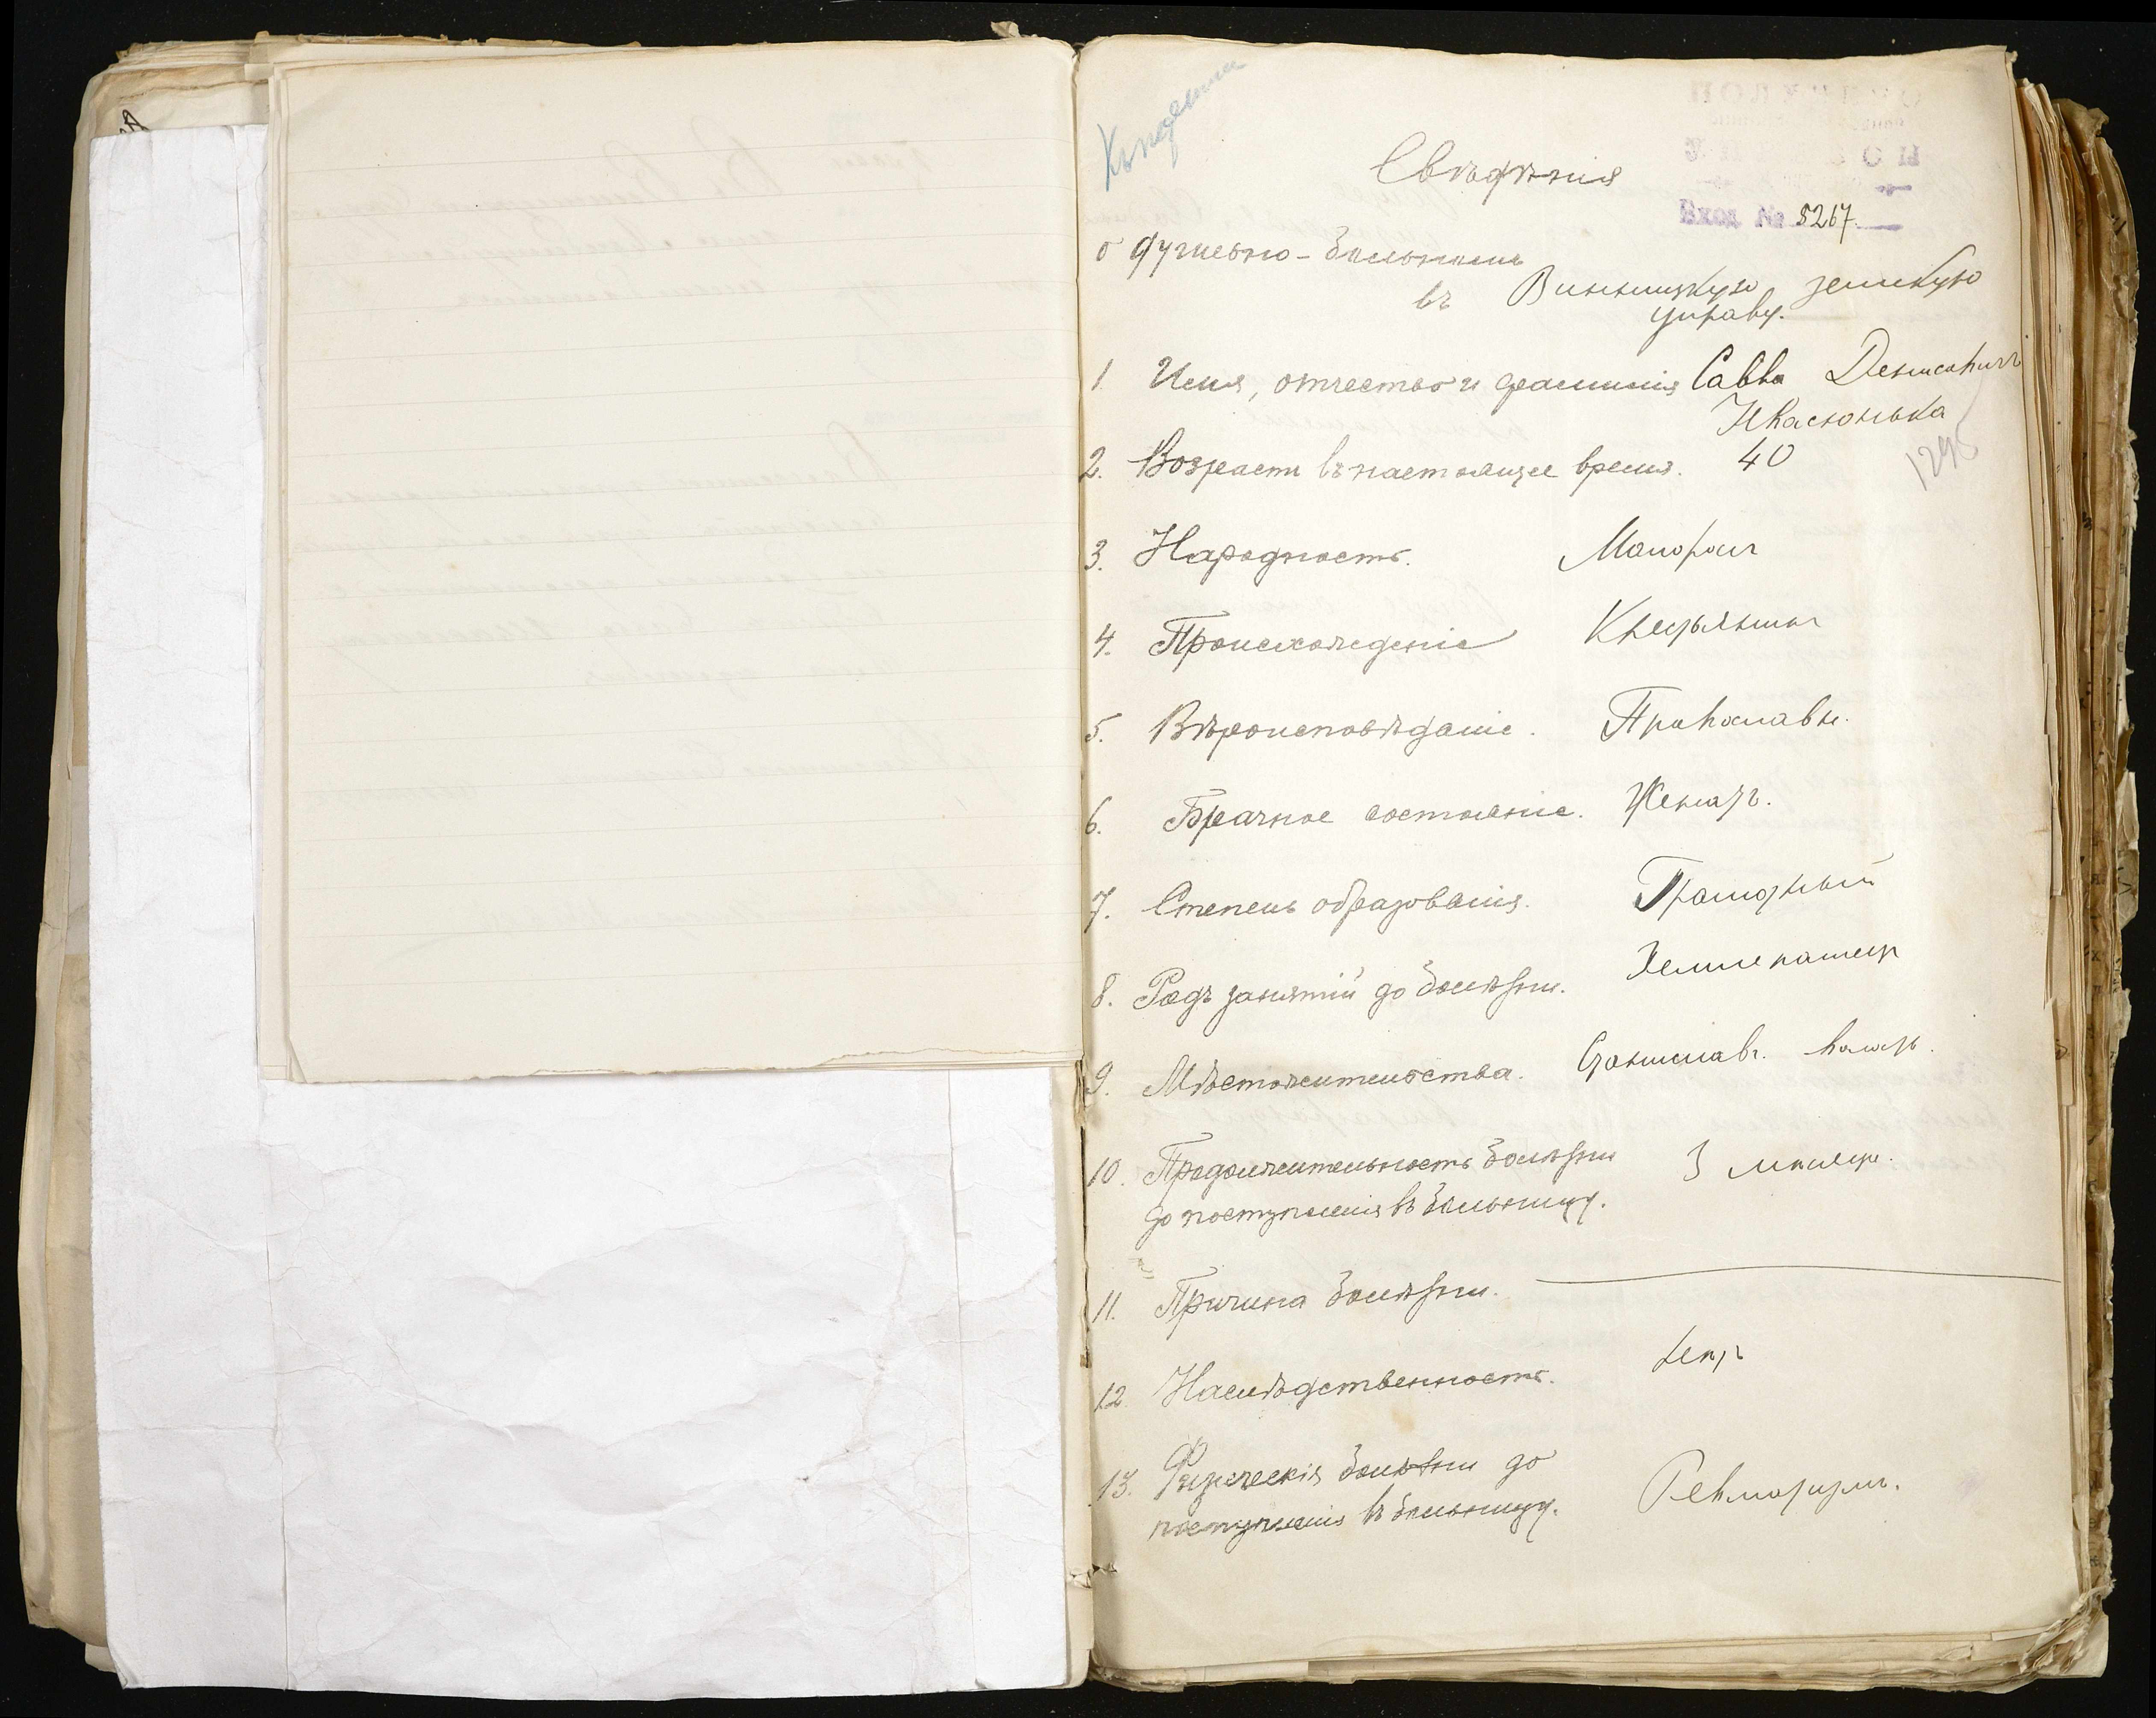 Свѣдѣнія
Вход № 5267
о душевно-больномъ
въ Винницкую земскую
управу.
1. Имя, отчество и фамилія Савва
2. Возрастъ въ настоящее время. 40
1295
3. Народность. Малоросъ
4. Происхожденіе Крестьянинъ
5. Вѣроисповѣданіе. Православн.
6. Брачное состояніе. Женатъ.
7. Степень образованія. Грамотный
8. Родъ занятій до болѣзни. Землепашец
9. Мѣстожительства. Станиславч. волость.
10. Продолжительность болѣзни 3 мѣсяца.
до поступленія въ больницу.
11. Причина болѣзни.
12. Наслѣдственность. нетъ
13. Физическія болѣзни до Ревматизмъ.
поступленія въ больницу.